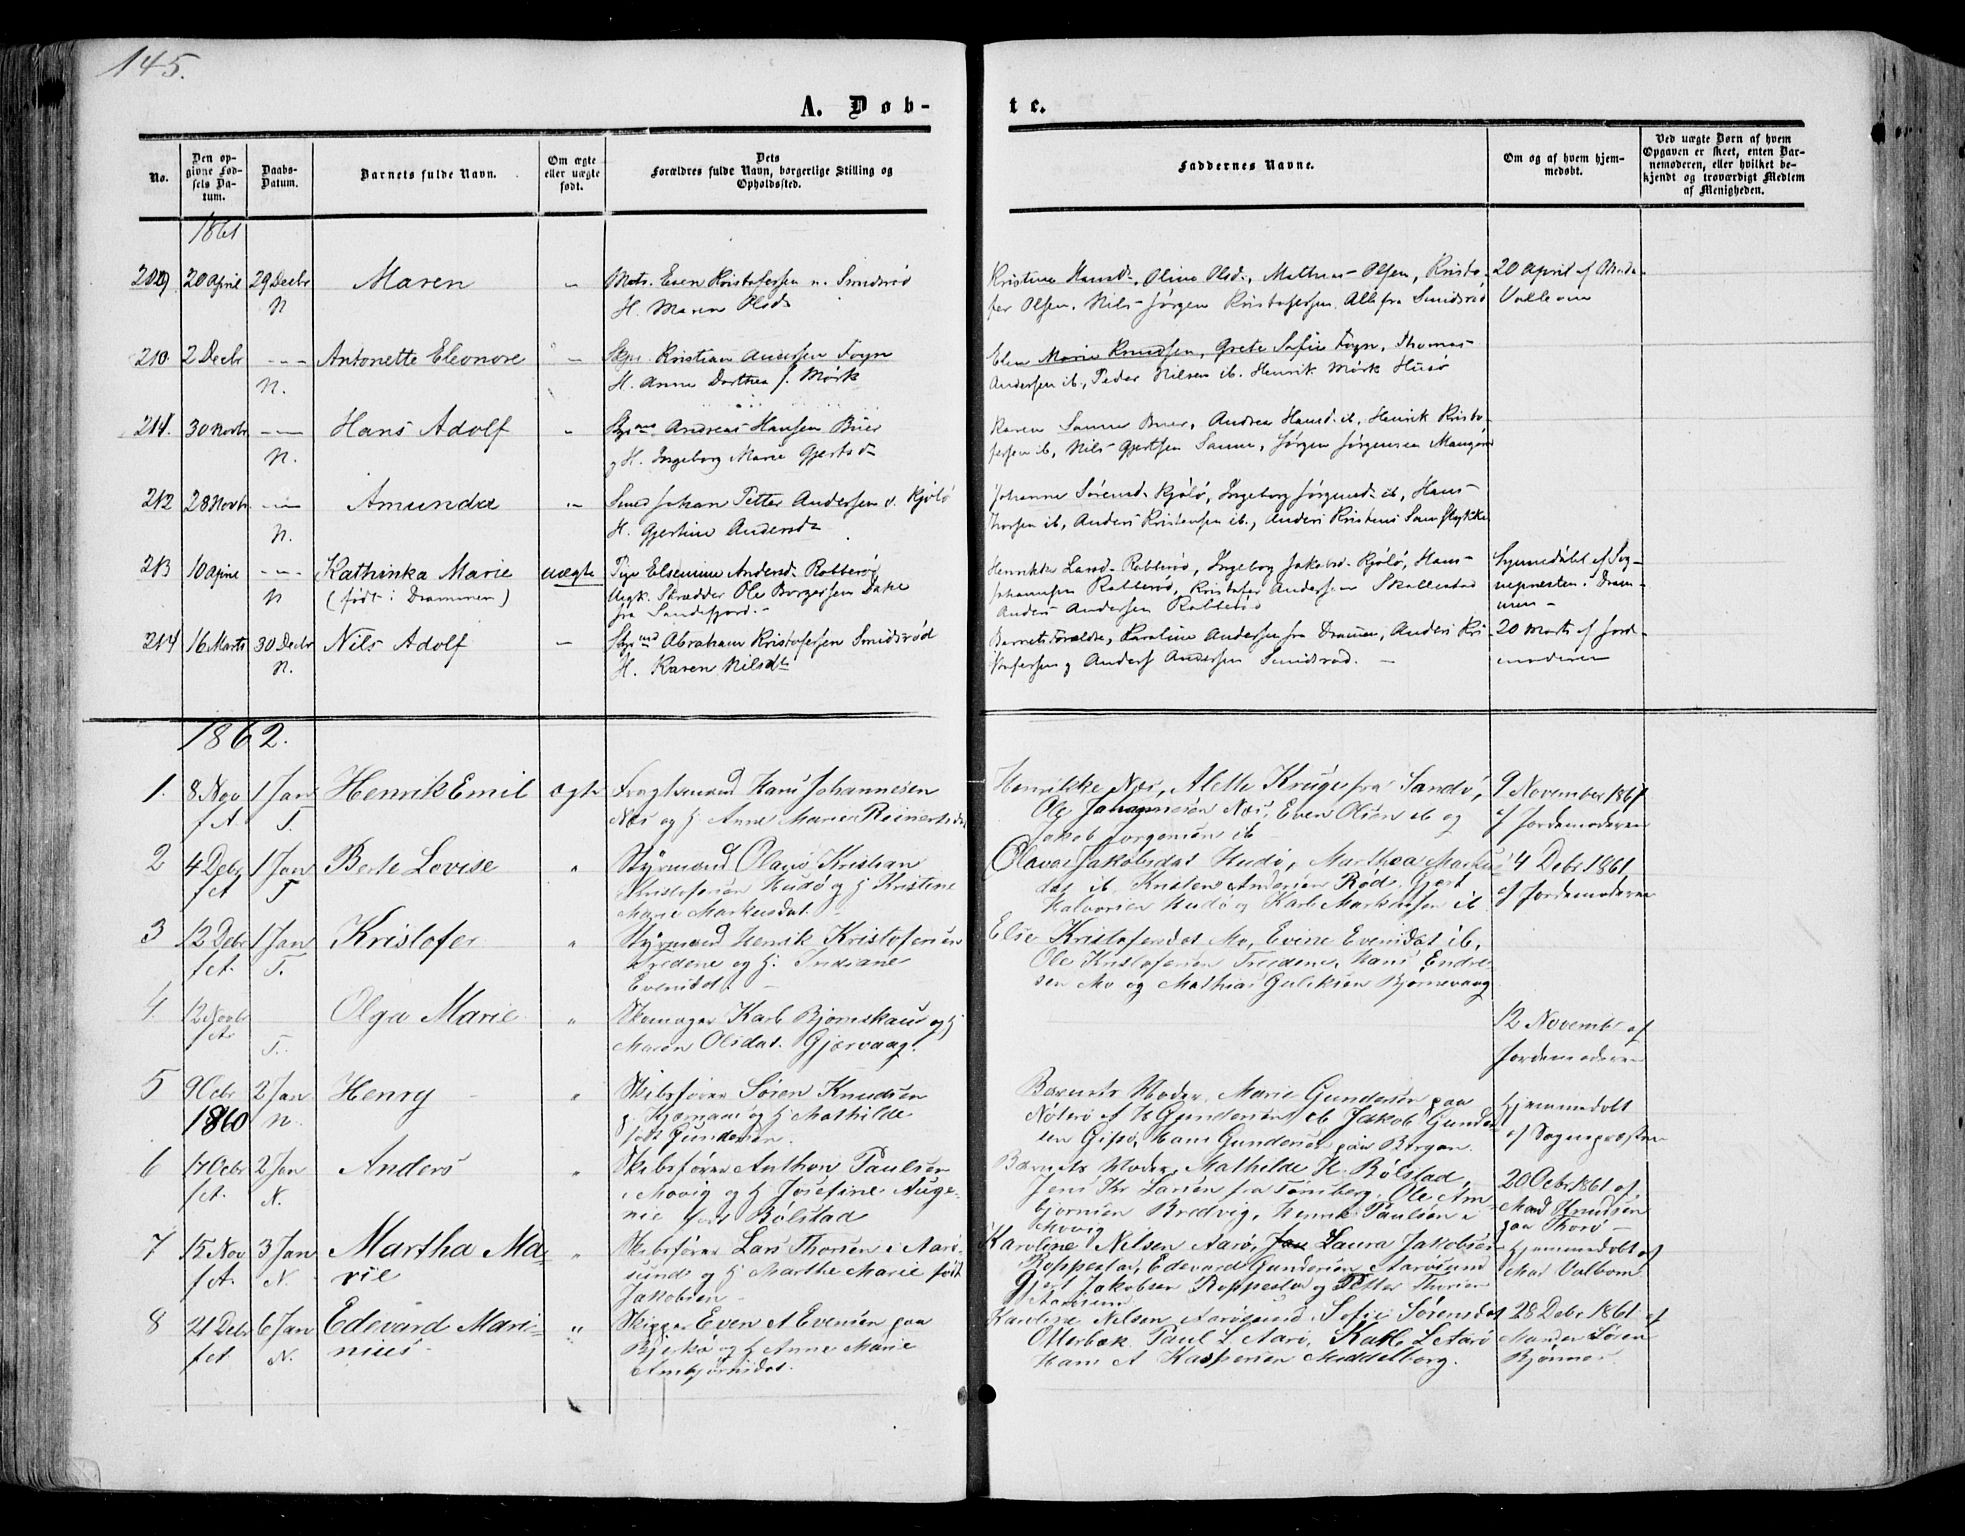 145.
A. Døb-
te.
No.
Den op-
givne Fød-
sels Da-
tum.
Daabs-
Datum.
Barnets fulde Navn.
Om ægte
eller uægte
født.
Dets
Forældres fulde Navn, borgerlige Stilling og
Opholdssted.
Faddernes Navne.
Om og af hvem hjem-
medøbt.
Ved uægte Børn af hvem
Opgaven er skeet, enten Bar-
nemoderen, eller hvilket be-
kjendt og troværdigt Medlem
af Menigheden.
1861
209 20 April 29 Decbr Maren " Mats. Even Kristofersen v. Smidsrød
N H. Maren Olsd
Kristine Hansd, Oline Olsd, Mathias Olsen, Kristo-
fer Olsen, Nils Jørgen Kristofersen Alle fra Smidsrød
20 April af
210 2 Decbr --- Antonette Eleonore " Kristian Andersen Foyn
N. H. Anne Dorthea f. Mørk
Elen Marie Knudsen, Grete Sofie Foyn, Thomas
Andersen ib, Peder Nilsen ib. Henrik Mørk Husø
211. 30 Novbr --- Hans Adolf " Styrmd Andreas Hansen Buer
N. g H. Ingeborg Marie Gjertsd
Karen Sanne Buer, Andrea Hansd ib, Henrik Kristo-
fersen ib, Nils Gjertsen Sanne, Jørgen Jørgensen
212 28 Novbr --- Amunda " Smed Johan Petter Andersen v. Kjølø
N. H. Gjertine Andersd
Johanne Sørensd Kjølø, Ingeborg Jørgensd ib, Hans
Thorsen ib, Anders Kristensen ib., Anders Kristens
213 10 April --- Kathinka Marie uægte Pige Elsemine Andersd Rabberød
N (født i Drammen) Ungk. Skrædder Ole Borgersen
fra Sandefjord.-
Henrikke Lund Rabberød, Ingeborg Jakobsd Kjølø, Hans
Johannsen Rabberød, Kristofer Andersen Skallestad
Anders Andersen Rabberød
Hjemmedøbt af Sog-
nepresten i Dram-
men-
214 16 Marts 30 Decbr Nils Adolf - Styrmd Abraham Kristofersen Smidsrød
N. H. Karen Nilsdt
Barnets Forældre, Karoline Andersen fra Drammen, Anders Kri-
stofersen g Anders Andersen Smidsrød. -
20 Marts af Jord-
moderen
1862.
1. 8 Nov 1 Jan Henrik Emil ægte Fragtemand Hans Johannesen
f A. T. Næs og H. Anne Marie Reinertsd
Henrikke Næs, Alette Kruge fra Sandø,
Ole Johannesen Næs, Even Olsen ib og
Jakob Jørgensen ib
9 November 1861
af Jordemoderen
2 4 Debr 1 Jan Berte Lovise " Styrmand Olaus Kristian
f A T Kristofersen Hudø og H Kristine
Marie Markusdat.
Olava Jakobsdat Hudø, Marthea Markus-
dat ib. Kristen Andersen Rød. Gjert
Halvorsen Hudø og Karl Markussen ib.
4 Debr 1861
af Jordemoderen
3 12 Debr 1 Jan Kristofer " Styrmand Henrik Kristofersen
f A. T. Tredene og H. Indiane
Evensdt. -
Else Kristofersdat Mo, Evine Evensdat ib,
Ole Kristofersen Tredene, Hans Endre-
sen Mo og Mathias Guliksen Bjørnevaag
4. 12 Novbr Olga Marie " Skomager Karl Bjørnskaus og H
f A. T. Maren Olsdat. Gjervaag.
12 November af
Jordemoderen
5 9 Ocbr 2 Jan Henry - " Skibsfører Søren Knudsen
1860 N. Kjæmaas og H Mathilde
født Gundersen.
Barnets Moder, Marie Gundersen paa
Nøterø af H Gundersens ib Jakob Gunder-
sen Gipsø, Hans Gundersen paa Bergan.
Hjemmedøbt
af Sognepræsten
6 17 Ocbr 2 Jan Anders " Skibsfører Anthon Paulsen
f A. N. i Movig og H Josefine Auge-
nie født Bølstad
Barnets Moder, Mathilde H. Bølstad,
Jens Kr Larsen fra Tønsberg, Ole Am-
bjørnsen Bredvig, Henrik Paulsen i
Movig
20 Ocbr 1861 af
Mad Knudsen
paa Thorø -
7 15 Nov 3 Jan Martha Ma- " Skibsfører Lars Thorsen i Aarø-
f A. N. rie sund og H Marthe Marie født
Jakobsen -
Karoline Nilsen Aarø, Laura Jakobsen
Roppestad, Edevard Gundersen Aarøsund
Gjert Jakobsen Roppestad og Petter Thorsen
Aarøsund
Hjemmedøbt af
Mad Valbom
8 21 Debr 6 Jan Edevard Mari- " Skipper Even A Evensen paa
f A. N. nius Bjerkø og H Anne Marie
Ambjørnsdat.
Karoline Nilsen Aarøsund, Sofie Sørensdat
Otterbæk Paul L Aarø, Karl L Aarø
Hans A Kaspersen Middelborg.
28 Debr 1861 af
Søren
Bjønnes.